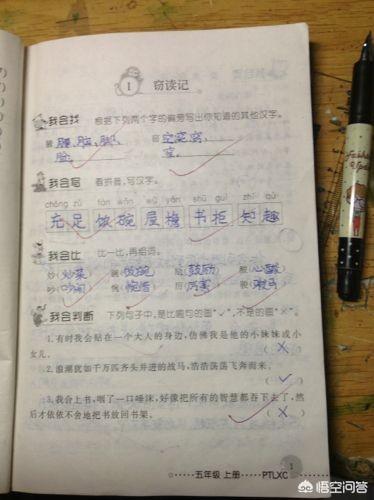 1 窃读记
我会找 根据下列两个字的偏旁写出你知道的其他汉字。
腰、脑、脚、 容 空、窗、窝、
脸、
我会写 看拼音,写汉字。
chōng zú fàn wǎn wū yán shū guì zhī qù
充足 饭碗 屋檐 书柜 知趣
我会比 比一比,再组词。
炒(炒菜) 碗(饭碗) 励(鼓励) 酸(心酸)
吵(吵闹) 惋(惋惜) 厉(厉害)
我会判断 下列句子中,是比喻句的画“✓”,不是的画“×”。
1.有时我会贴在一个大人的身边,仿佛我是他的小妹妹或小
女儿。 (×)
2.浪潮犹如千万匹齐头并进的战马,浩浩荡荡飞奔而来。
(✓)
3.我合上书,咽了一口唾沫,好像把所有的智慧都吞下去了,然
后才依依不舍地把书放回书架。 (×)
1
五年级 上册 PTLXC
悟空问答